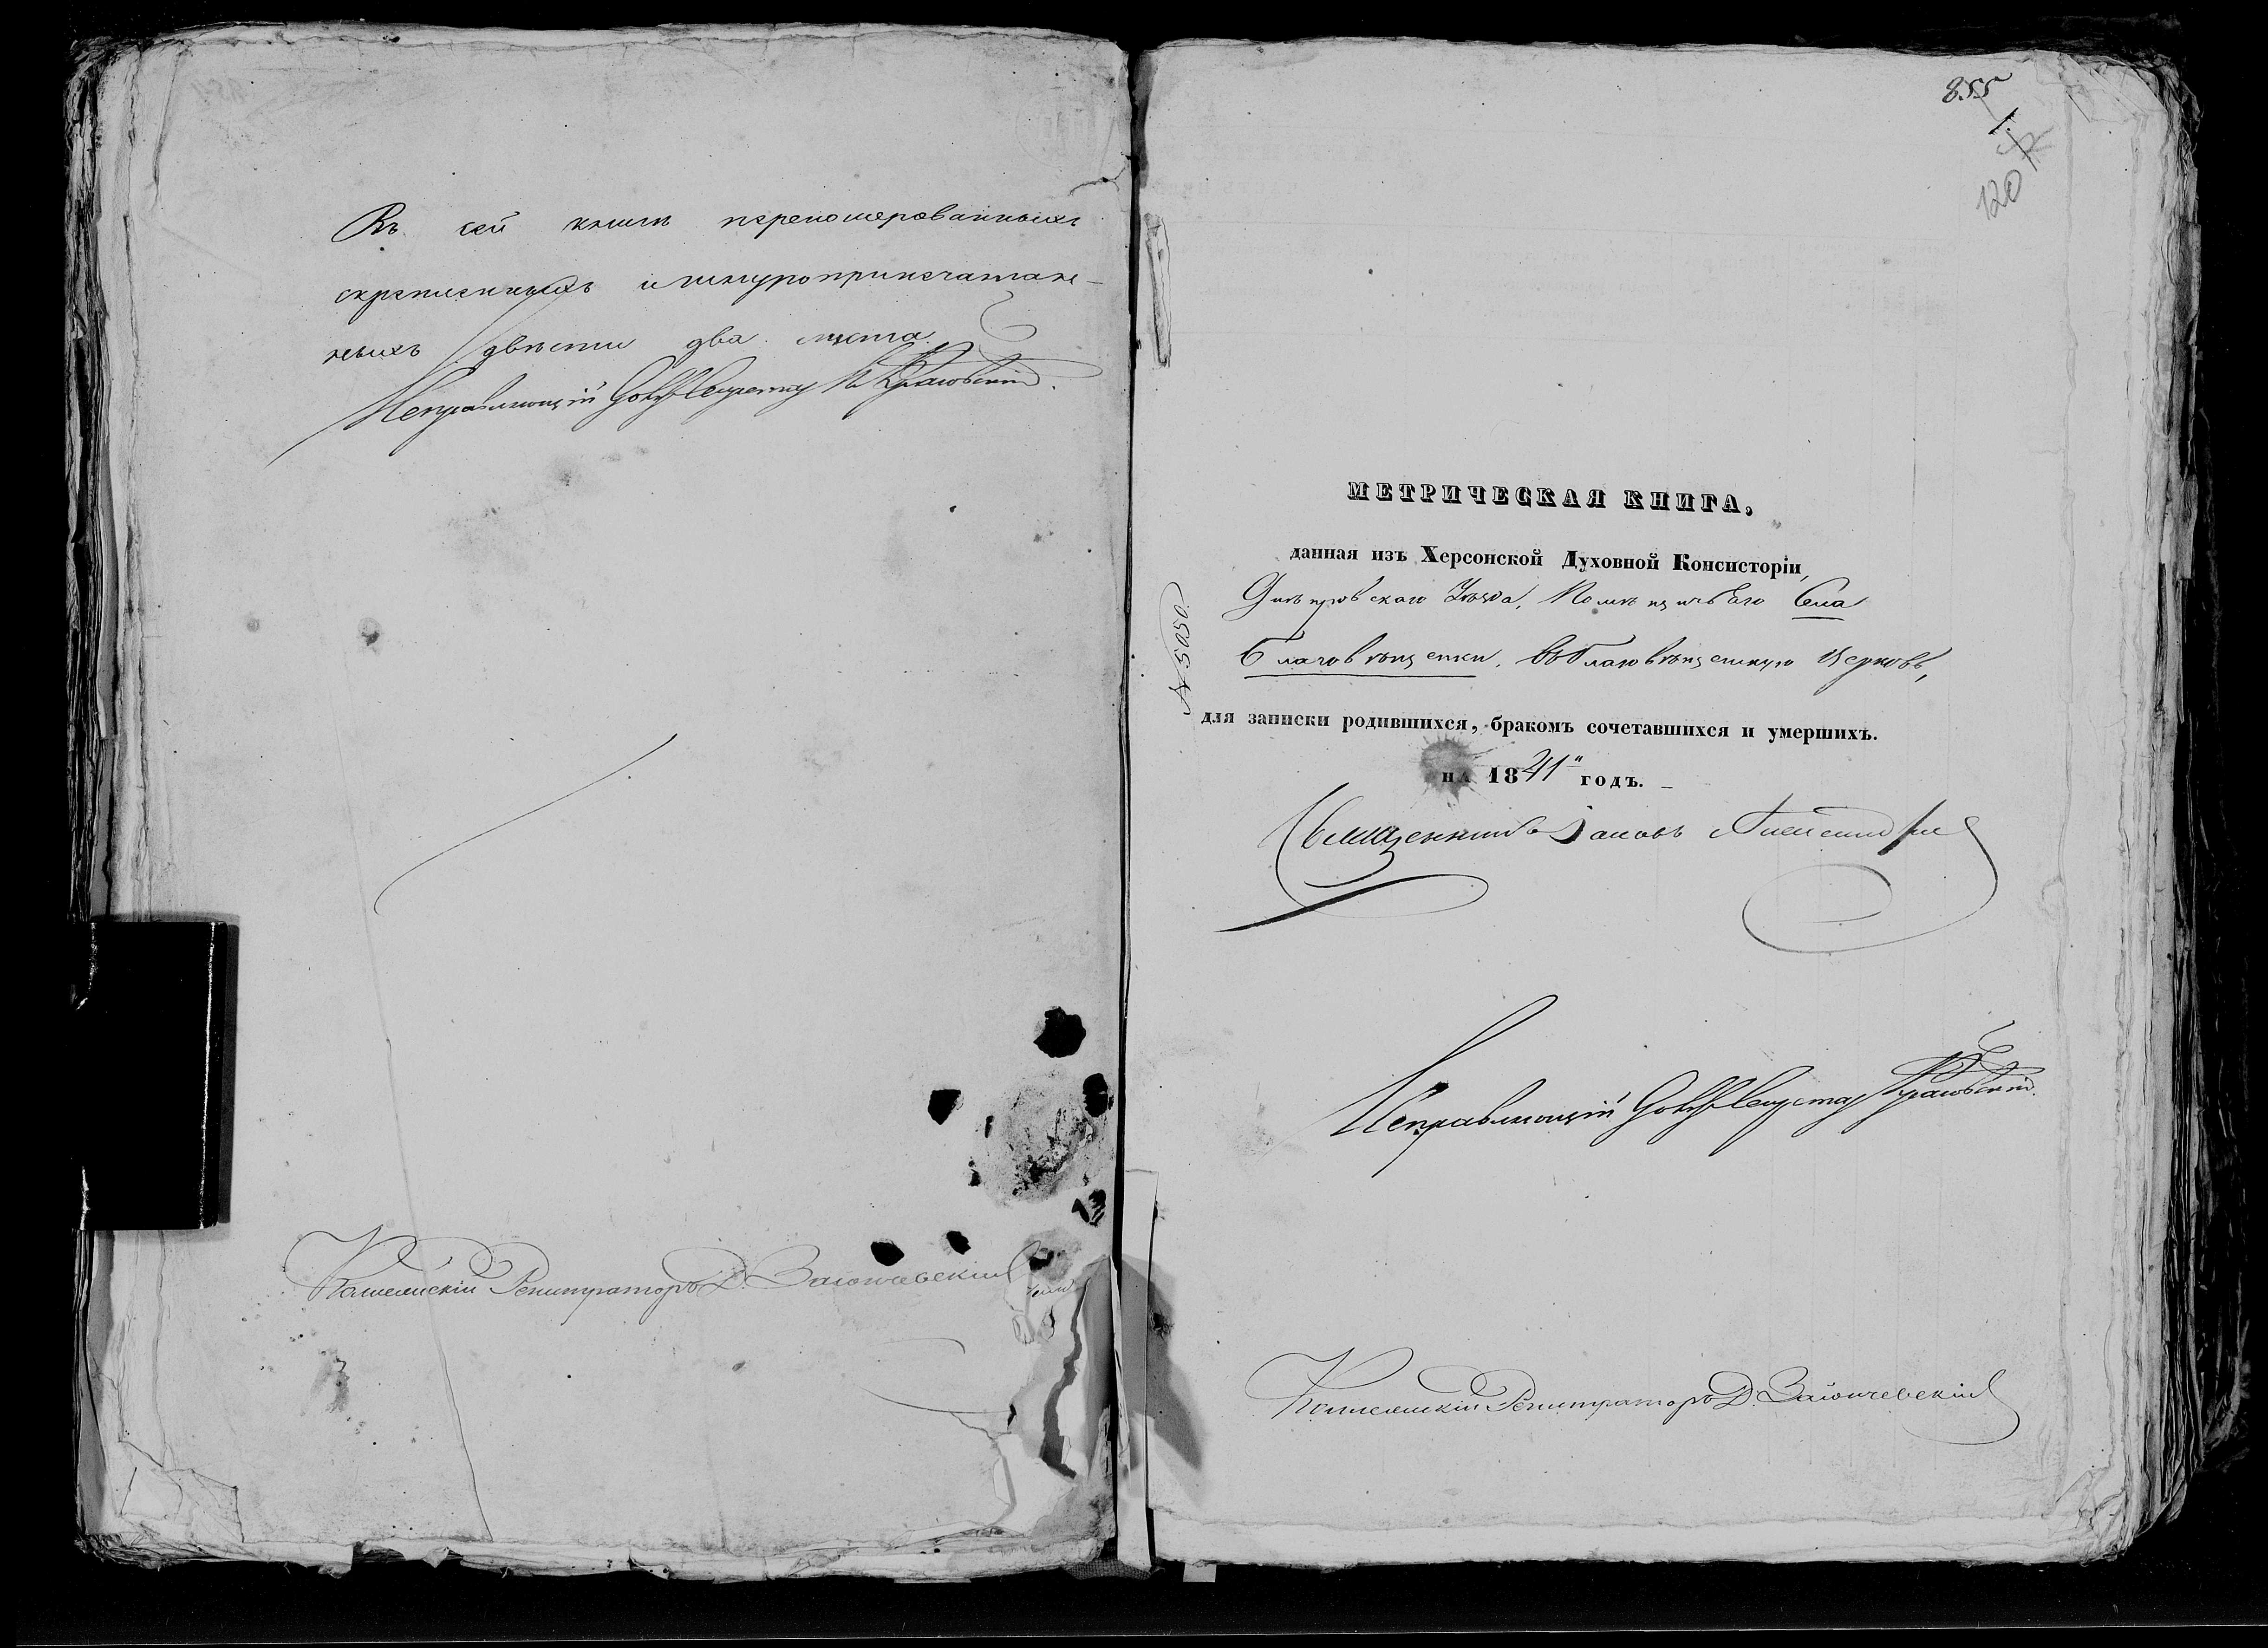 Въ сей книгѣ перенумерованныхъ
скрепленныхъ и шнуроприпечатан-
ныхъ двѣсти два листа.
Исправляющій Должн Секретаря Крыжовскій.
Коллежскій Регистраторъ Д. Заіончевскій
855
1.
120
МЕТРИЧЕСКАЯ КНИГА,
данная изъ Херсонской Духовной Консисторіи,
Днѣпровскаго Уѣзда, Помѣщичьяго Села
Благовѣщенки, въ Благовѣщенскую Церковь,
№ 5050.
для записки родившихся, бракомъ сочетавшихся и умершихъ.
на 1841 годъ.
Священникъ Іаковъ
Исправляющій Должн Секретаря
Коллежскій Регистраторъ Д. Заіончевскій